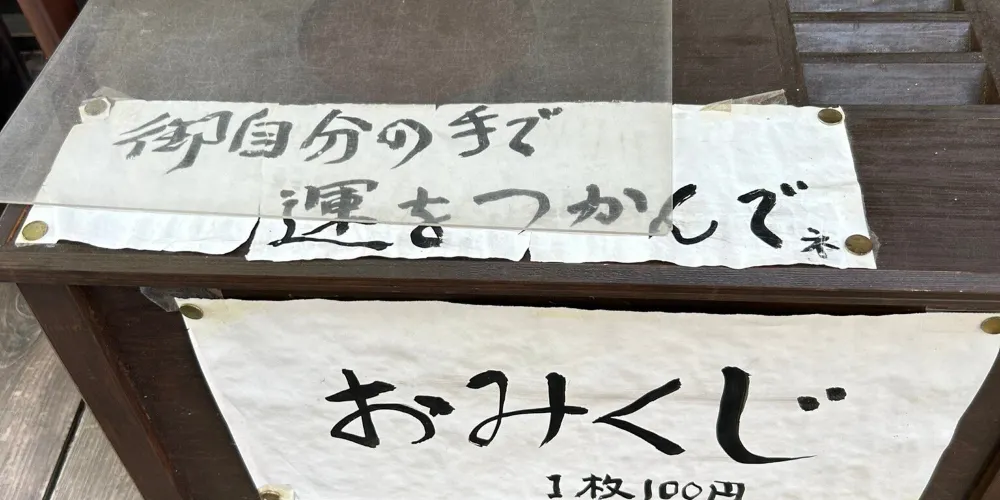 御自分の手で
運をつかんでネ
おみくじ
1枚100円